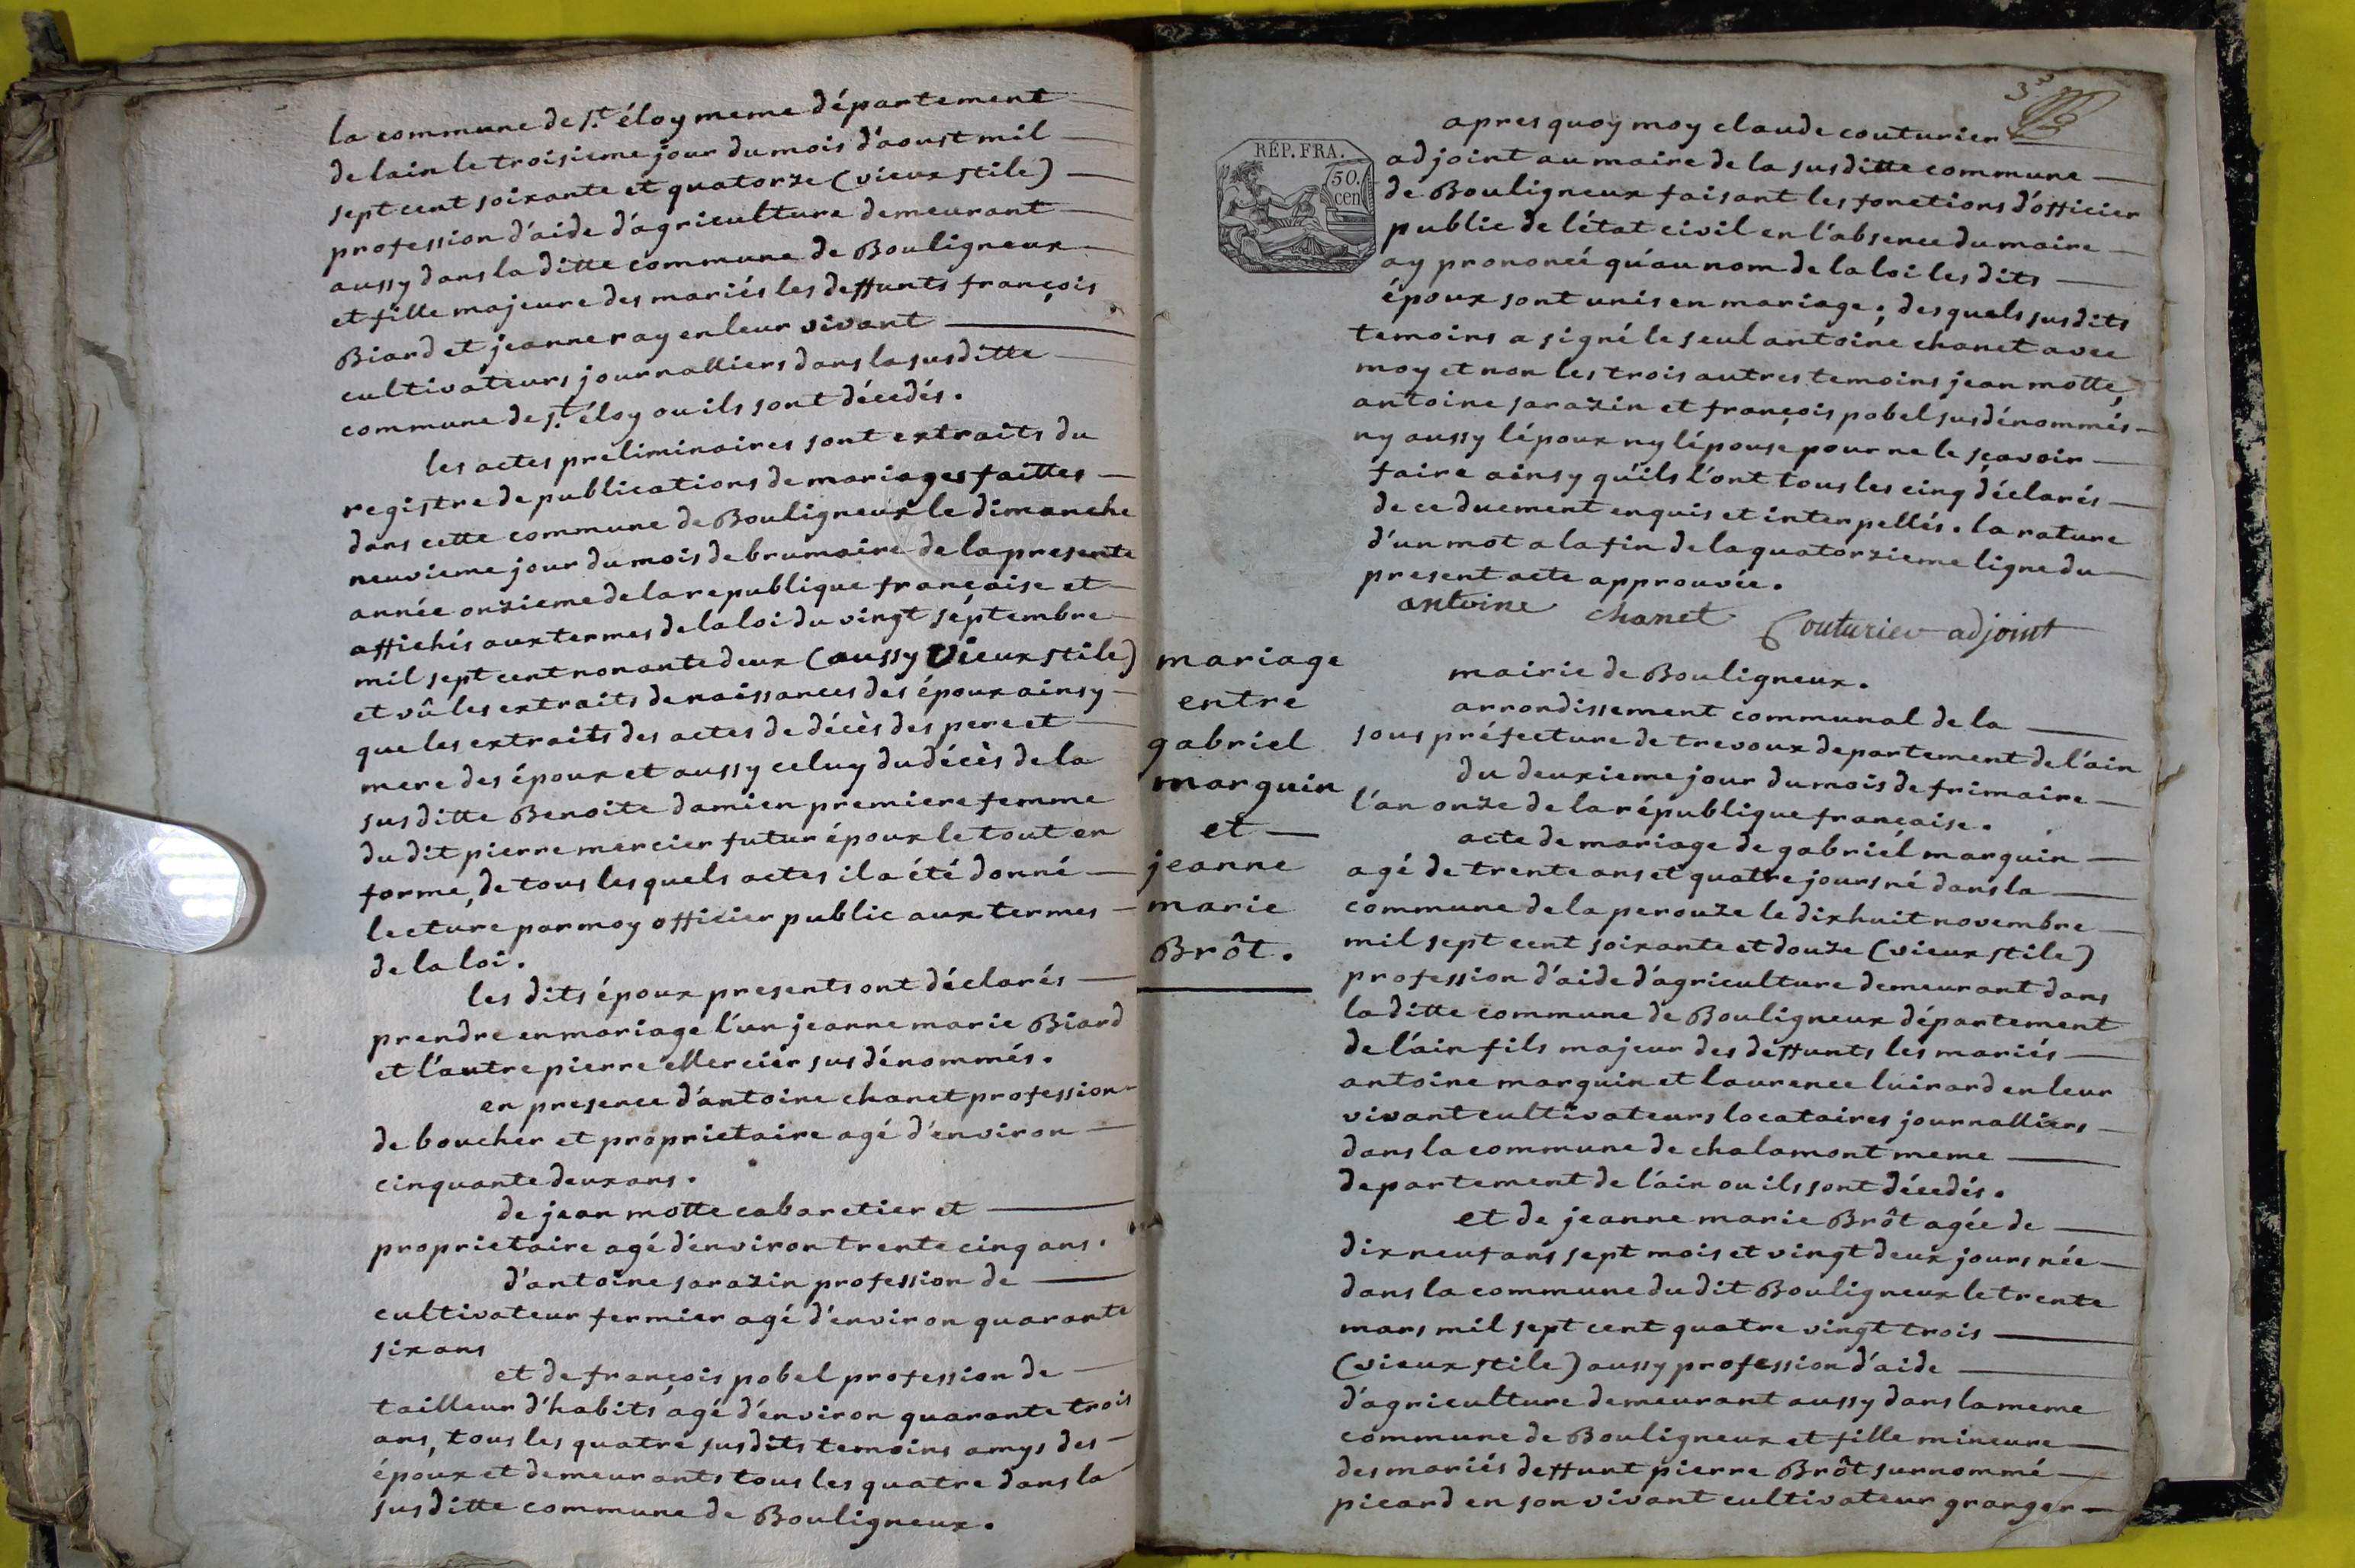 la commune de s.t éloy meme département
de lain le troisieme jour du mois d'aoust mil
sept cent soixante et quatorze (vieux stile)
profession d'aide d'agriculture demeurant
aussy dans la ditte commune de Bouligneux
et fille majeure des mariés les deffunts françois
Biard et jeanne ray en leur vivant
cultivateurs journalliers dans la susditte
commune de s.t éloy ou ils sont décedés.
les actes preliminaires sont extraits du
registre de publications de mariages faittes
dans cette commune de Bouligneux le dimanche
neuvieme jour du mois de brumaire de la presente
année onzieme de la republique françoise et
affichés aux termes de la loi du vingt séptembre
mil sept cent nonante deux (aussy vieux stile)
et vû les extraits de naissances des époux ainsy
que les extraits des actes de décès des pere et
mere des époux et aussy celuy du décès de la
susditte Benoite damien premiere femme
du dit pierre mercier futur époux le tout en
forme, de tous les quels actes il a été donné
lecture par moy officier public aux termes
de la loi.
les dits époux presents ont déclarés
prendre en mariage l'un jeanne marie Biard
et l'autre pierre Mercier susdénommés.
en presence d'antoine chanet profession
de boucher et proprietaire agé d'environ
cinquante deux ans.
de jean motte cabaretier et
proprietaire agé d'environ trente cinq ans.
d'antoine sarazin profession de
cultivateur fermier agé d'environ quarante
six ans
et de françois pobel profession de
tailleur d'habits agé d'environ quarante trois
ans, tous les quatre susdits temoins amys des
époux et demeurants tous les quatre dans la
susditte commune de Bouligneux.
3
RÉP. FRA.
50.
cen
apres quoy moy claude couturier
adjoint au maire de la susditte commune
de Bouligneux faisant les fonctions d'officier
public de l'état civil en l'absence du maire
ay prononcé qu'au nom de la loi les dits
époux sont unis en mariage; des quels susdits
temoins a signé le seul antoine chanet avec
moy et non les trois autres temoins jean motte,
antoine sarazin et françois pobel susdénommés
ny aussy l'époux ny l'épouse pour ne le sçavoir
faire ainsy qu'ils l'ont tous les cinq déclarés
de ce duement enquis et interpellés. la rature
d'un mot a la fin de la quatorzieme ligne du
present acte approuvée.
antoine chanet Couturier adjoint
mariage
entre
gabriel
marguin
et
jeanne
marie
Brôt.
mairie de Bouligneux.
arrondissement communal de la
sous préfecture de trevoux departement de l'ain
du deuxieme jour du mois de frimaire
l'an onze de la république française.
acte de mariage de gabriél marguin
agé de trente ans et quatre jours né dans la
commune de la perouze le dixhuit novembre
mil sept cent soixante et douze (vieux stile)
profession d'aide d'agriculture demeurant dans
la ditte commune de Bouligneux département
de l'ain fils majeur des deffunts les mariés
antoine marguin et laurence luirard en leur
vivant cultivateurs locataires journalliers
dans la commune de chalamont meme
departement de l'ain ou ils sont décedés.
et de jeanne marie Brôt agée de
dix neuf ans sept mois et vingt deux jours née
dans la commune du dit Bouligneux le trente
mars mil sept cent quatre vingt trois
(vieux stile) aussy profession d'aide
d'agriculture demeurant aussy dans la meme
commune de Bouligneux et fille mineure
des mariés deffunt pierre Brôt surnommé
picard en son vivant cultivateur granger